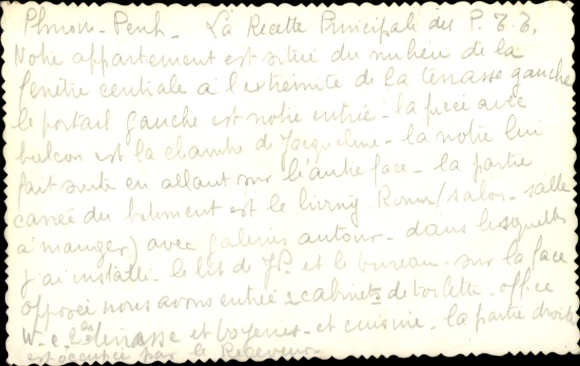 Phnom-Penh - La Recette Principale des P.T.T.
Notre appartement est situé du milieu de la
fenêtre centrale à l'extrémité de la terrasse gauche
le portail gauche est notre entrée - la pièce avec
balcon est la chambre de Jacqueline - la notre lui
fait suite en allant sur l'autre face - la partie
carrée du bâtiment est le living Room (salon - salle
à manger) avec galeries autour - dans lesquelles
j'ai installé le lit de JP. et le bureau - sur la face
opposée nous avons entrée 2 cabinets de toilette - office
W-c. terrasse et - et cuisine - la partie droite
est occupée par le Receveur -